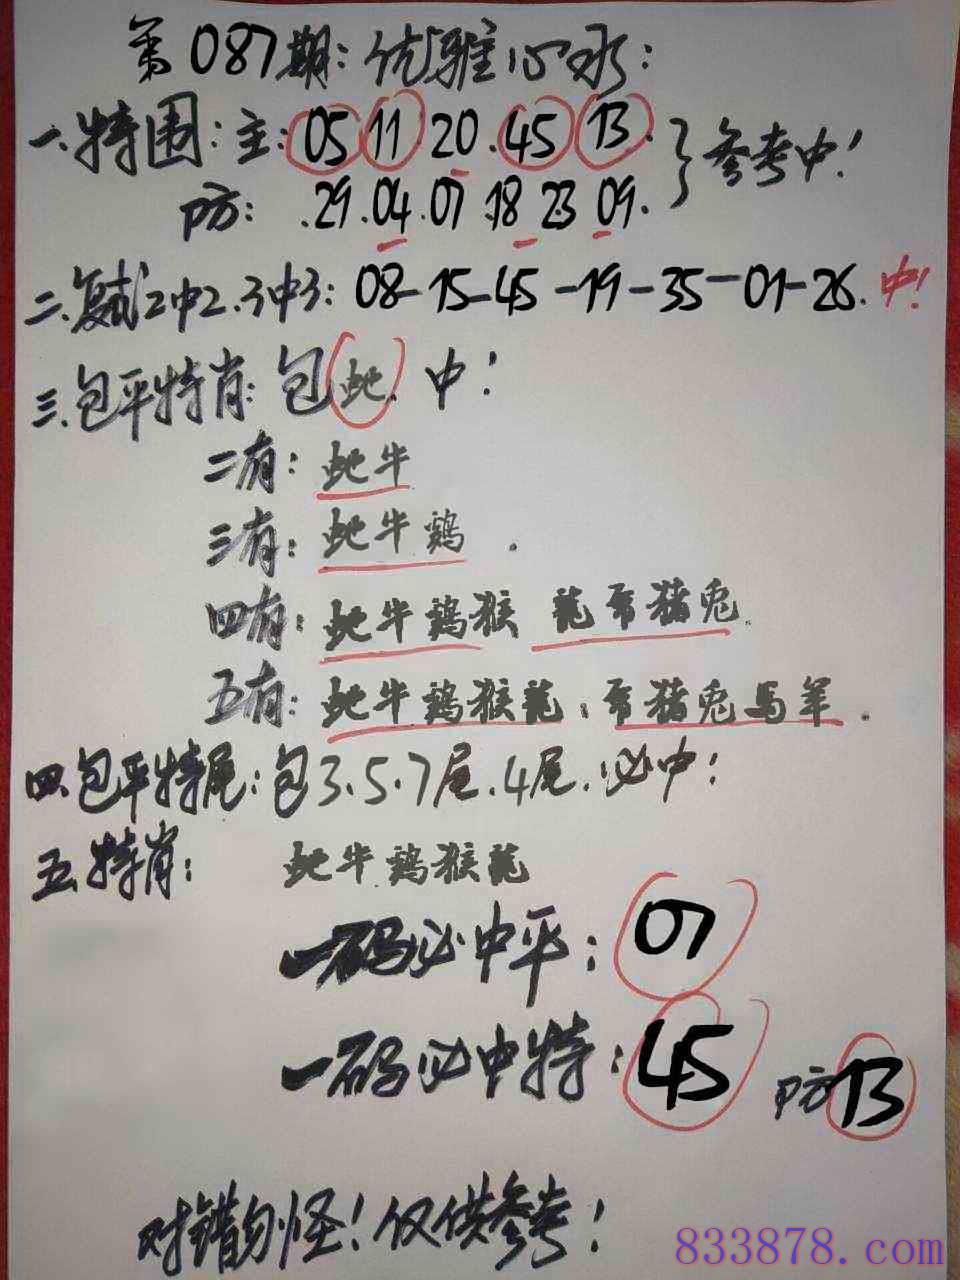 第087期:优雅心水:
一.特围:主:05 11 20.45 13.
防: .29.04.07.18 23 09. }参考中!
二.复试2中2.3中3:08-15-45-19-35-01-26.中!
三.包平特肖:包蛇.中!
二有:蛇牛
三有:蛇牛鸡.
四有:蛇牛鸡猴 龍帍猪兔.
五有:蛇牛鸡猴龍:帍猪兔馬羊.
四.包平特尾:包3.5.7尾.4尾.必中!
五.特肖: 蛇牛.鸡猴龍
一码必中平:07
一码必中特:45 防13
对错勿怪!仅供参考!
833878.com